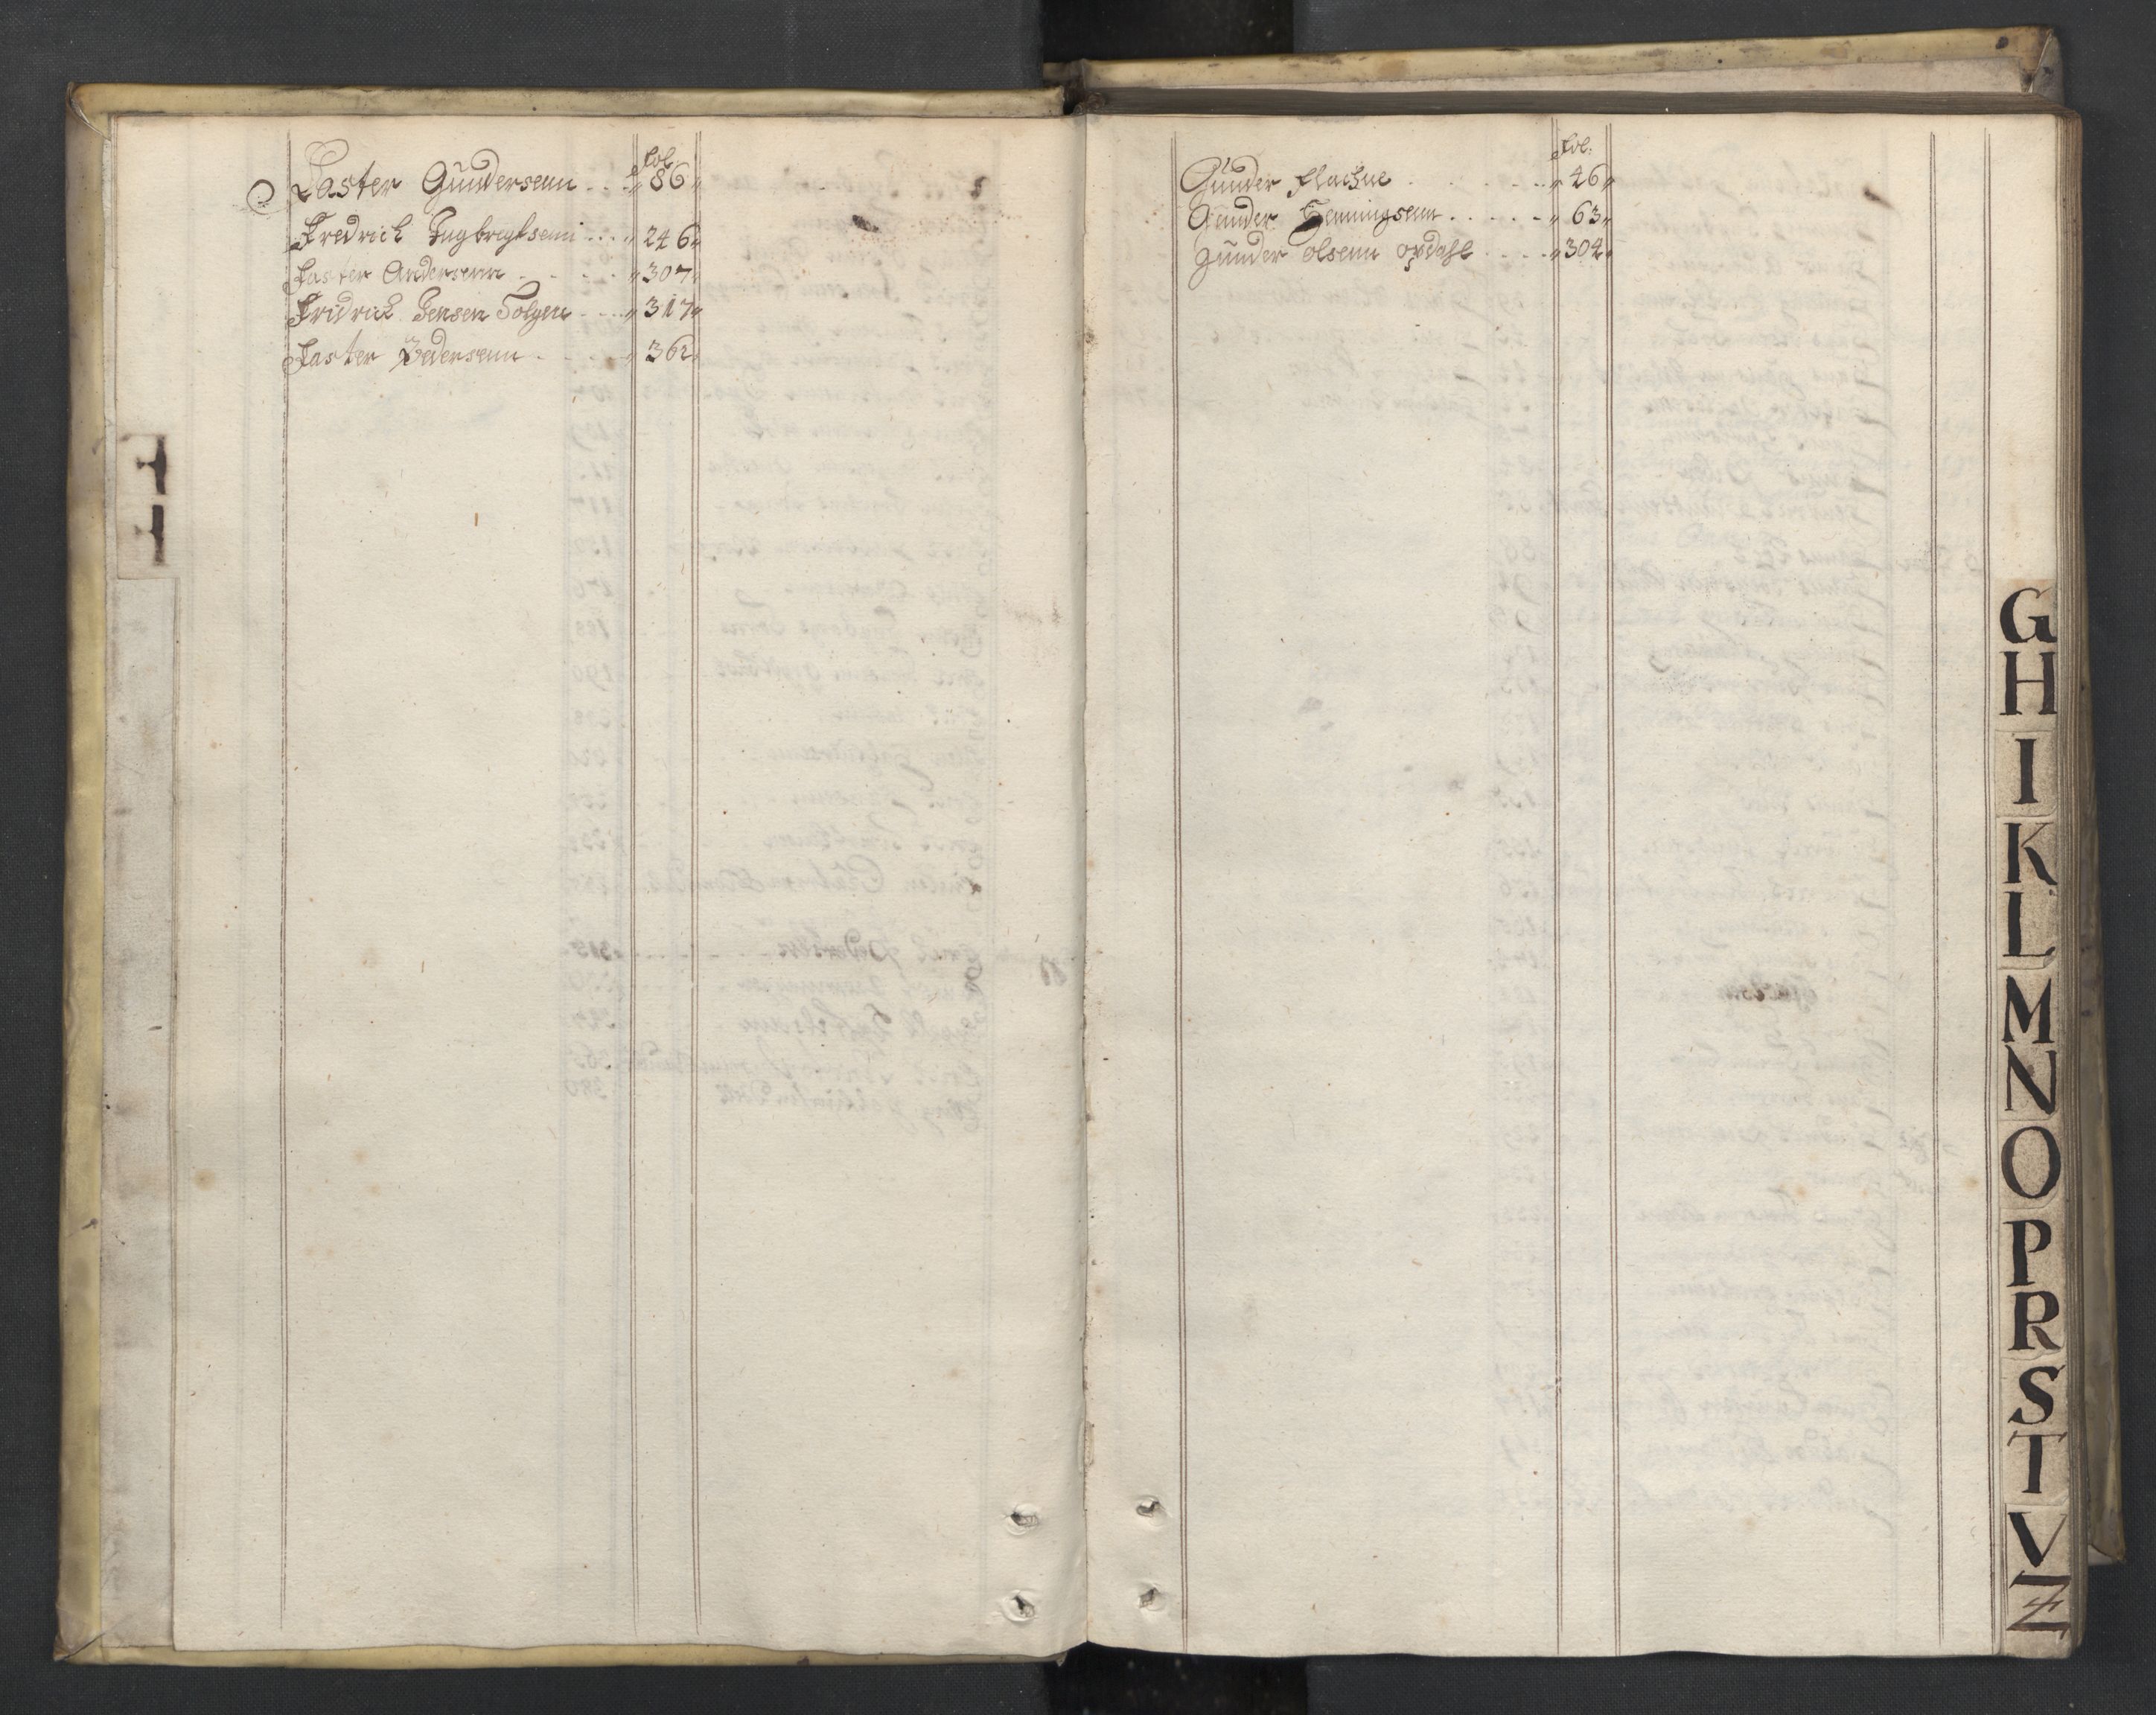 Fol.
Faster Gundersenn . . . „ 86 „
Fredrich Ingbregtsenn . . . „ 246 „
Faster Andersenn . . . . „ 307 „
Fridrich Jensen Tolgen . . . . „ 317 „
Faster Pedersenn . . . . „ 362 „
Fol:
Gűnder Flachne . . . . . „ 46 „
Gunder Henningsenn . . . . . „ 63 „
Gűnder Olsenn Opdahl . . . . „ 304 „
G
H
I
K
L
M
N
O
P
R
S
T
V
Z